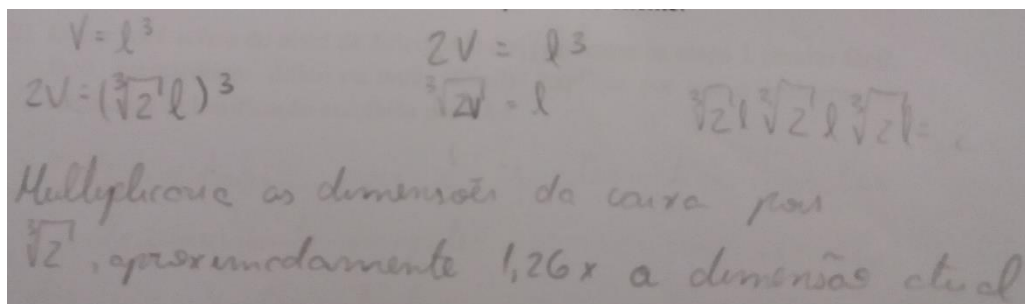 V = l³ 2V = l³
2V = (∛2 l)³ ∛2V = l ∛2 l ∛2 l ∛2 l =
Multiplicaria as dimensões da caixa por
∛2, aproximadamente 1,26x a dimensão atual